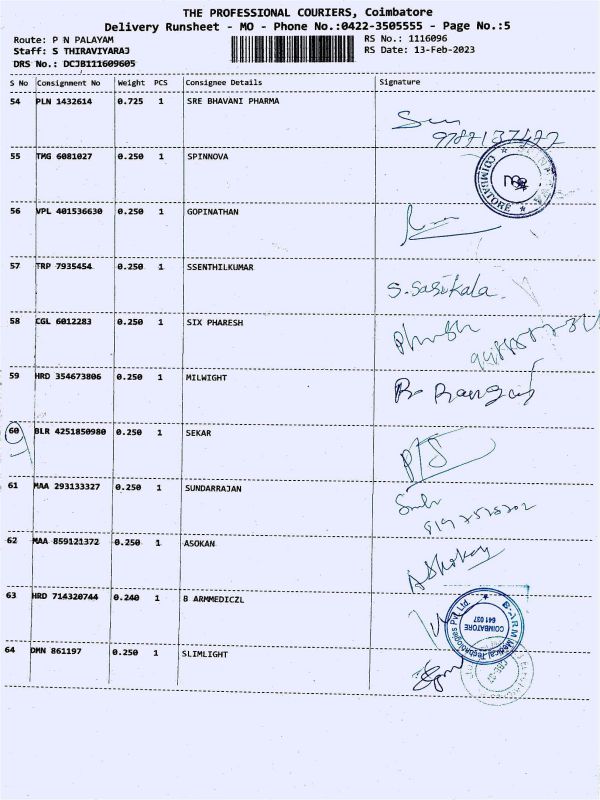 THE PROFESSIONAL COURIERS, Coimbatore
Delivery Runsheet - MO - Phone No.:0422-3505555 - Page No.:5
Route: P N PALAYAM RS No.: 1116096
Staff: S THIRAVIYARAJ RS Date: 13-Feb-2023
DRS No.: DCJB111609605
S No Consignment No Weight PCS Consignee Details Signature
54 PLN 1432614 0.725 1 SRE BHAVANI PHARMA
9787137477
55 TMG 6081027 0.250 1 SPINNOVA
COIMBATORE
56 VPL 401536630 0.250 1 GOPINATHAN
57 TRP 7935454 0.250 1 SSENTHILKUMAR
S. Sasikala
58 CGL 6012283 0.250 1 SIX PHARESH
59 HRD 354673806 0.250 1 MILWIGHT
60 BLR 4251850980 0.250 1 SEKAR
61 MAA 293133327 0.250 1 SUNDARRAJAN
62 MAA 859121372 0.250 1 ASOKAN
Ashokan
63 HRD 714320744 0.240 1 B ARMMEDICZL
B-ARM Medical Technologies Pvt Ltd.
COIMBATORE
641 037
64 DMN 861197 0.250 1 SLIMLIGHT